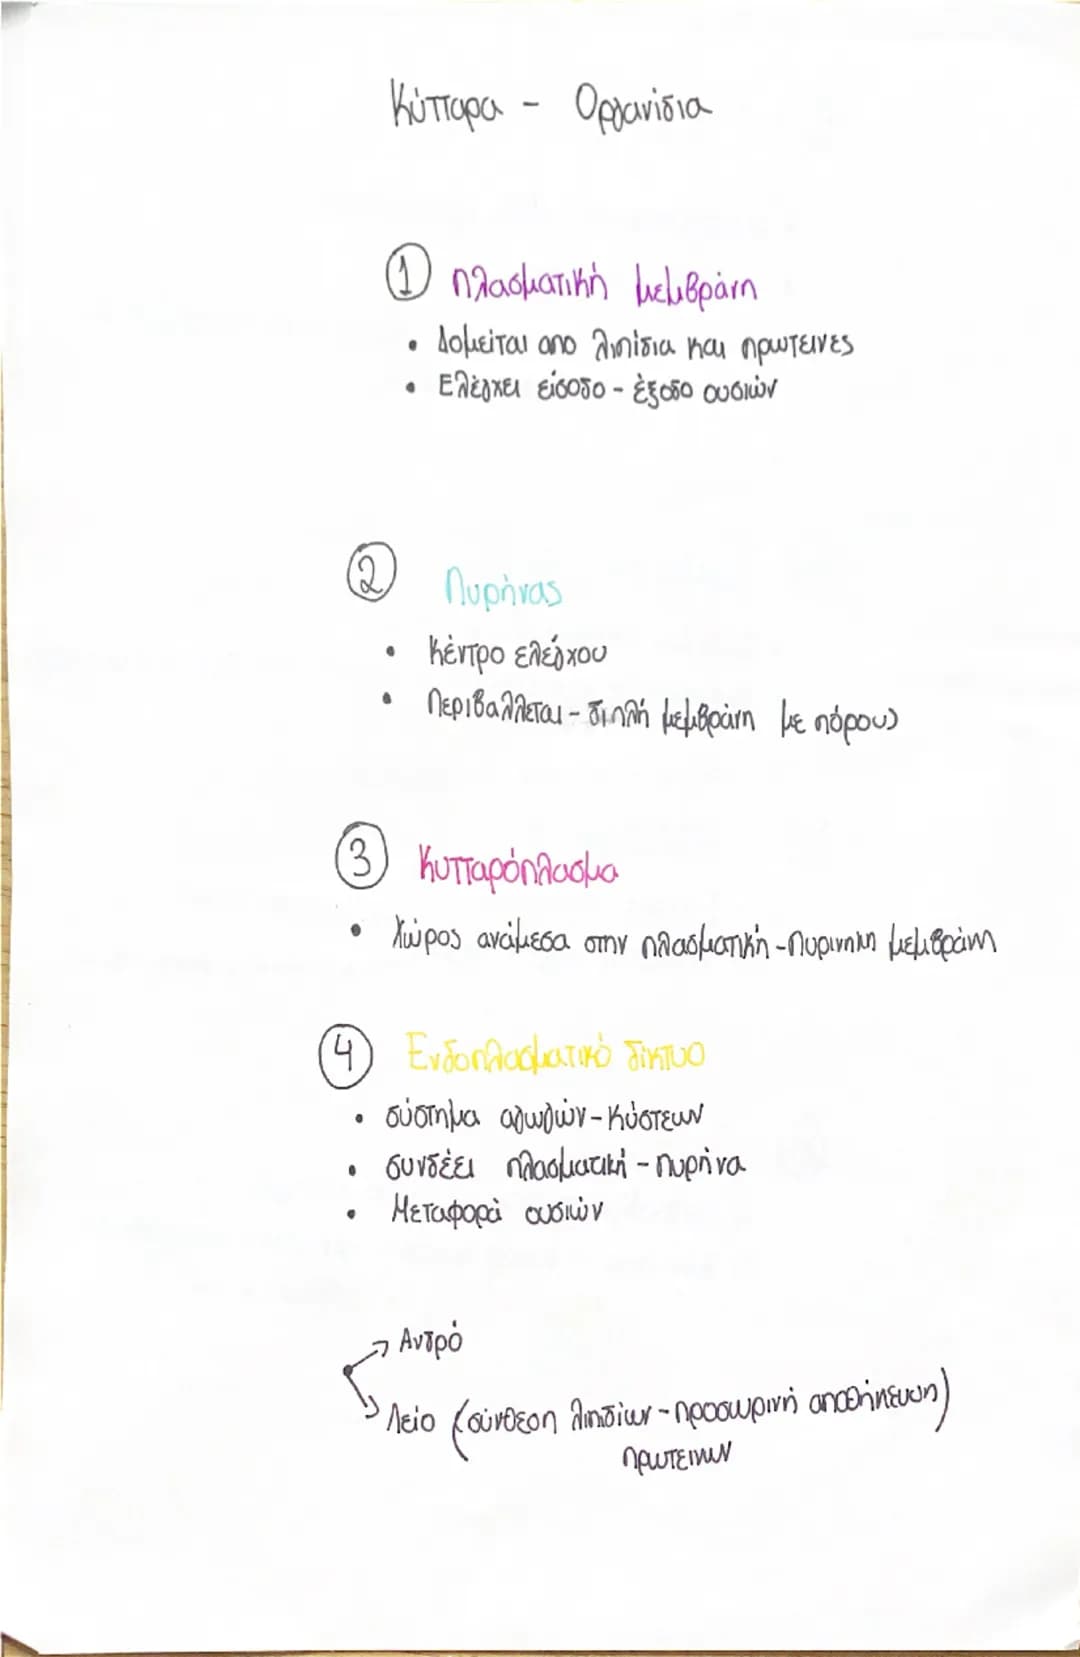 Κύτταρα - Οργανίδια
① Πλασματική μεμβράνη
• Δομείται απο λιπίδια και πρωτεινες
• Ελέγχει είσοδο - έξοδο ουσιών
② Πυρήνας
• Κέντρο ελέγχου
• Περιβαλλεται - διπλή μεμβράνη με πόρους
③ Κυτταρόπλασμα
• Χώρος ανάμεσα στην πλασματική - πυρινηκη μεμβράνη
④ Ενδοπλασματικό δίκτυο
• σύστημα αγωγών - κύστεων
• συνδέει πλασματική - πυρήνα
• Μεταφορά ουσιών
→ Αδρό
→ Λείο (σύνθεση λιπιδίων - προσωρινή αποθήκευση)
πρωτεινων